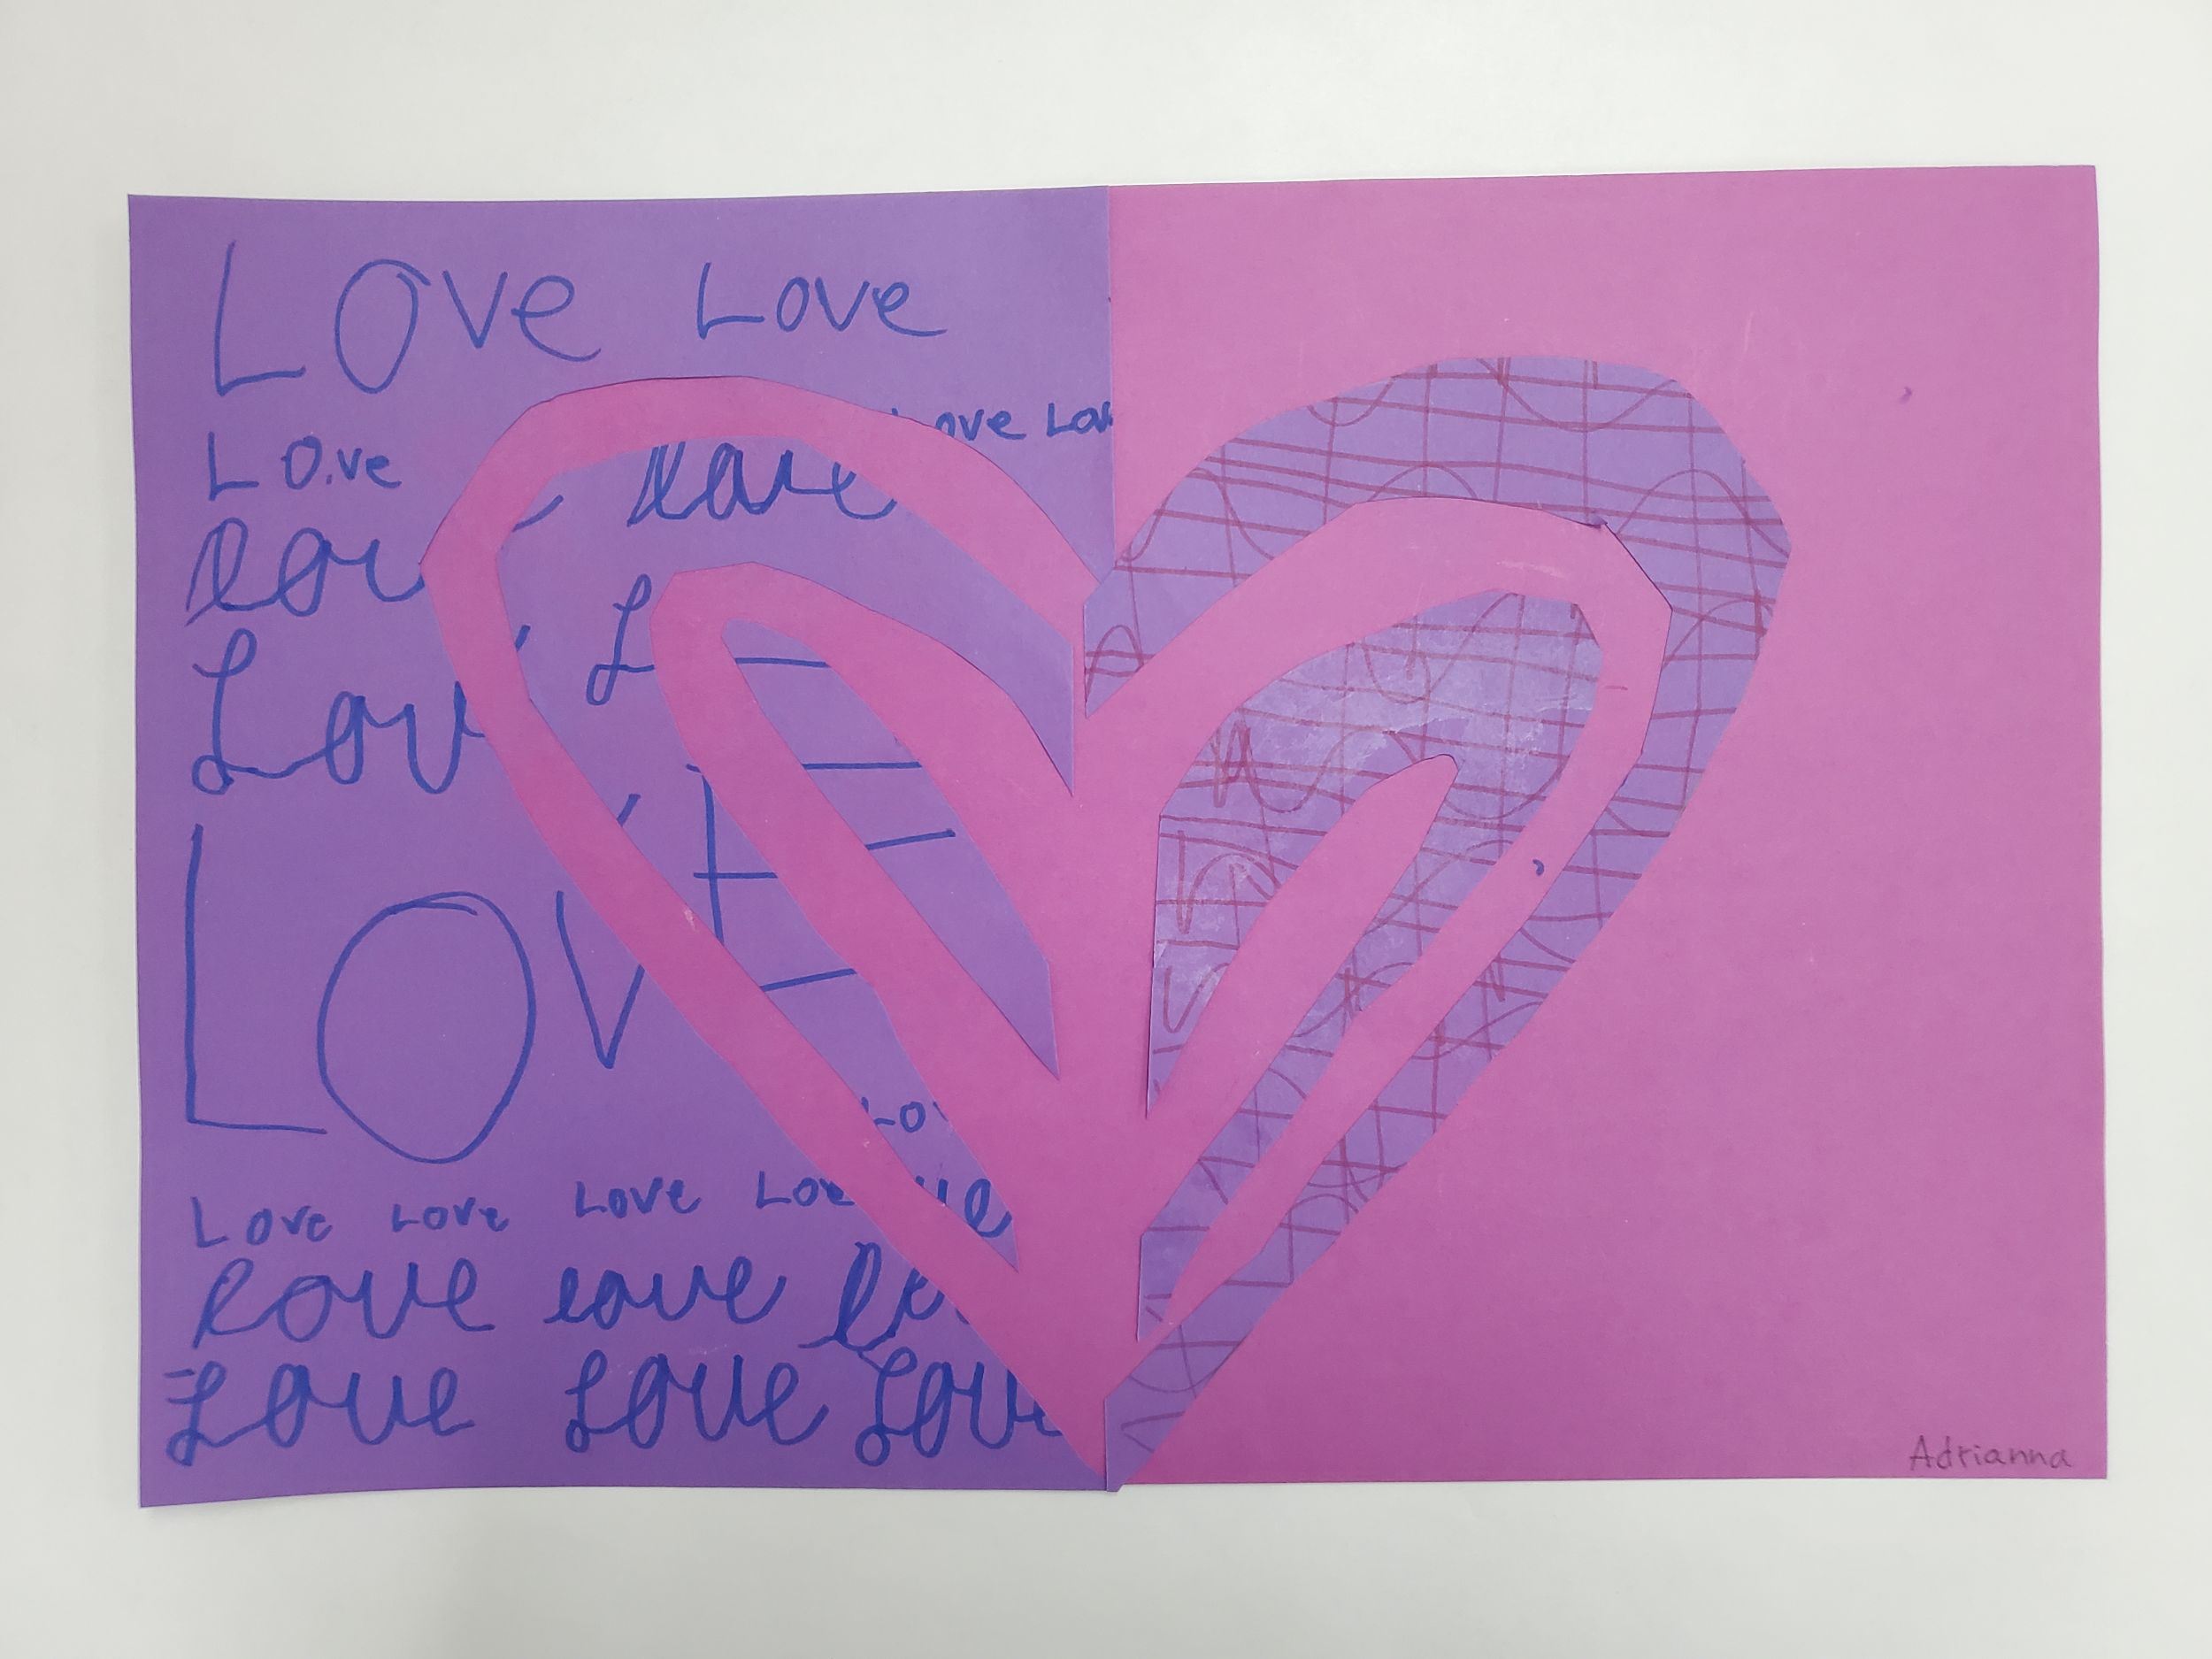 Love Love
Love Love Lov
Lov Love
Lov L
LOV E
Lov
Love Love Love Love ve
Love Love Lo
Love Love Love
Adrianna